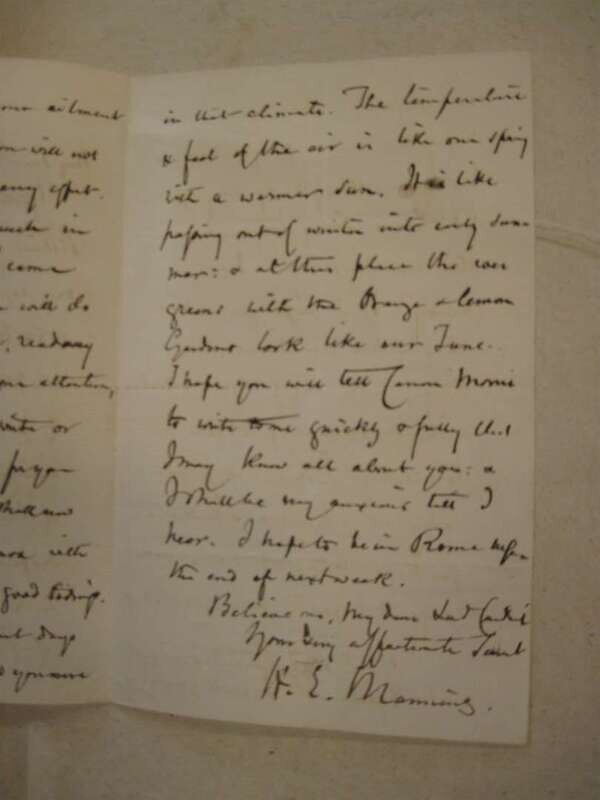 our ailment
will not
any effort.
much in
come
will do
, read any
your attention,
write or
for you
shall now
with
good tidings.
days
you were
in that climate. The temperature
& feel of the air is like our spring
with a warmer sun. It is like
passing out of winter into early sum
mer: & at this place the ever
greens with the Orange & lemon
Gardens look like our June.
I hope you will tell Canon Morris
to write to me quickly & fully that
I may know all about you: &
I shall be very anxious till I
hear. I hope to be in Rome before
the end of next week.
Believe me, my dear Lord Cardinal
Your very affectionate Servt
H. E. Manning.